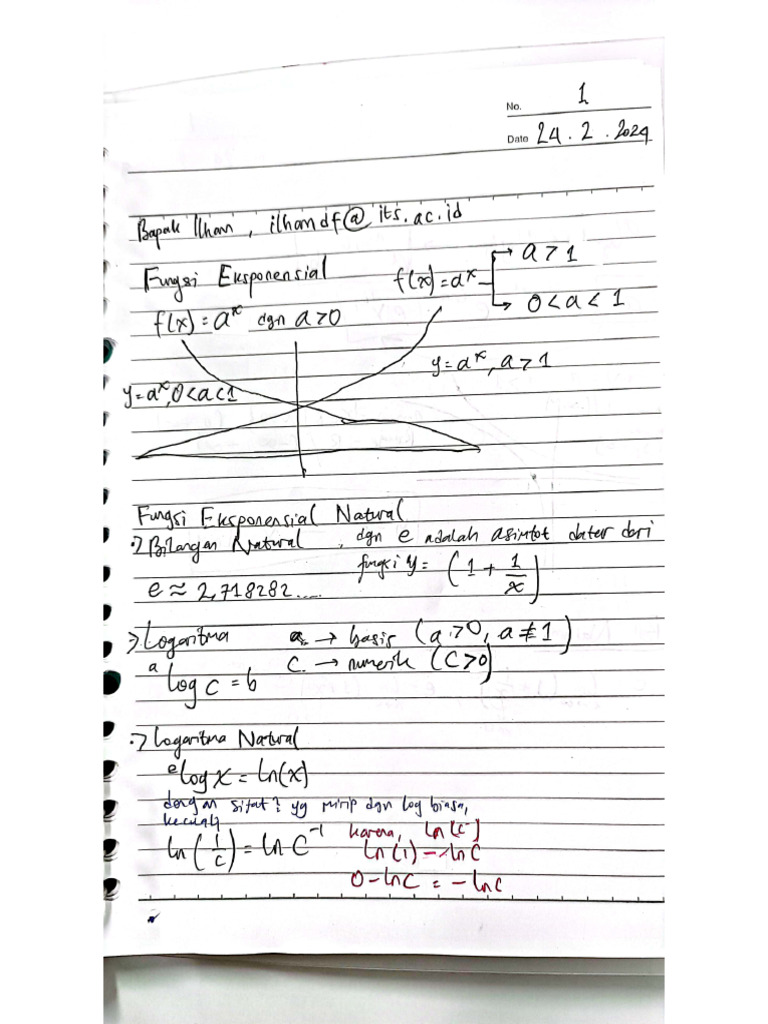 No. 1
Date 24.2.2024
Bapak Ilham, ilhamdf@its.ac.id
Fungsi Eksponensial
f(x) = aˣ → a > 1
→ 0 < a < 1
f(x) = aˣ dgn a > 0
y = aˣ, a > 1
y = aˣ, 0 < a < 1
Fungsi Eksponensial Natural
Bilangan Natural, dgn e adalah asimtot datar dari
fungsi y = (1 + 1/x)
e ≈ 2,718282....
Logaritma a. → basis (a > 0, a ≠ 1)
C. → numerik (C > 0)
ᵃlog C = b
Logaritma Natural
ᵉlog x = ln(x)
dengan sifat² yg mirip dgn log biasa,
kecuali
ln(1/c) = ln C⁻¹
karena, ln(
ln(1) - ln C
0 - ln C = - ln C